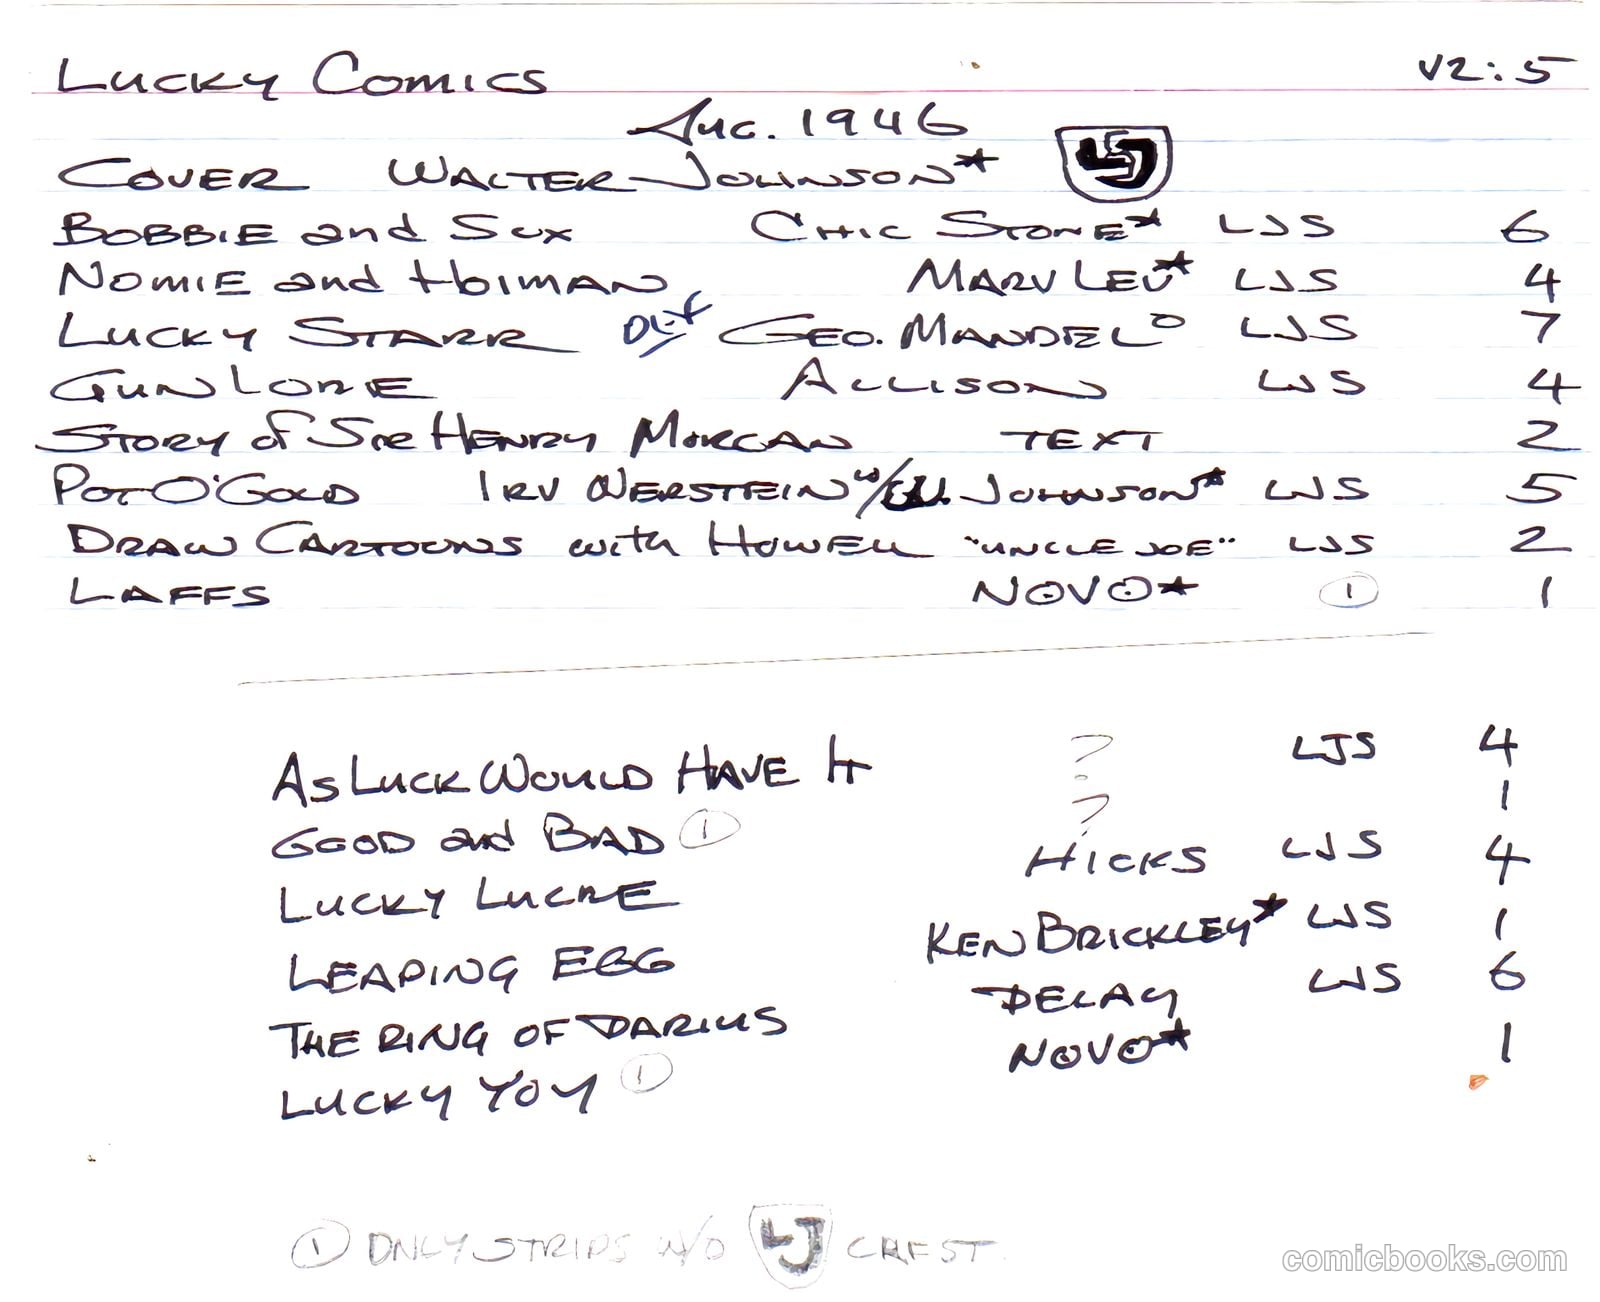 LUCKY COMICS V2:5
AUG. 1946
COVER WALTER JOHNSON*
LJS
BOBBIE and SUX CHIC STONE* LJS 6
NOMIE and HOIMAN MARV LEV* LJS 4
LUCKY STARR GEO. MANDEL° LJS 7
GUN LORE ALLISON LJS 4
STORY of SIR HENRY MORGAN TEXT 2
POT O'GOLD IRV WERSTEIN w/W. JOHNSON* LJS 5
DRAW CARTOONS with HOWELL "UNCLE JOE" LJS 2
LAFFS NOVO* ① 1
AS LUCK WOULD HAVE IT ? LJS 4
GOOD and BAD ① ? 1
LUCKY LUCRE HICKS LJS 4
LEAPING EGG KEN BRICKLEY* LJS 1
THE RING OF DARIUS DELAY LJS 6
LUCKY YOY ① NOVO* 1
① ONLY STRIPS W/O LJ CREST.
comicbooks.com